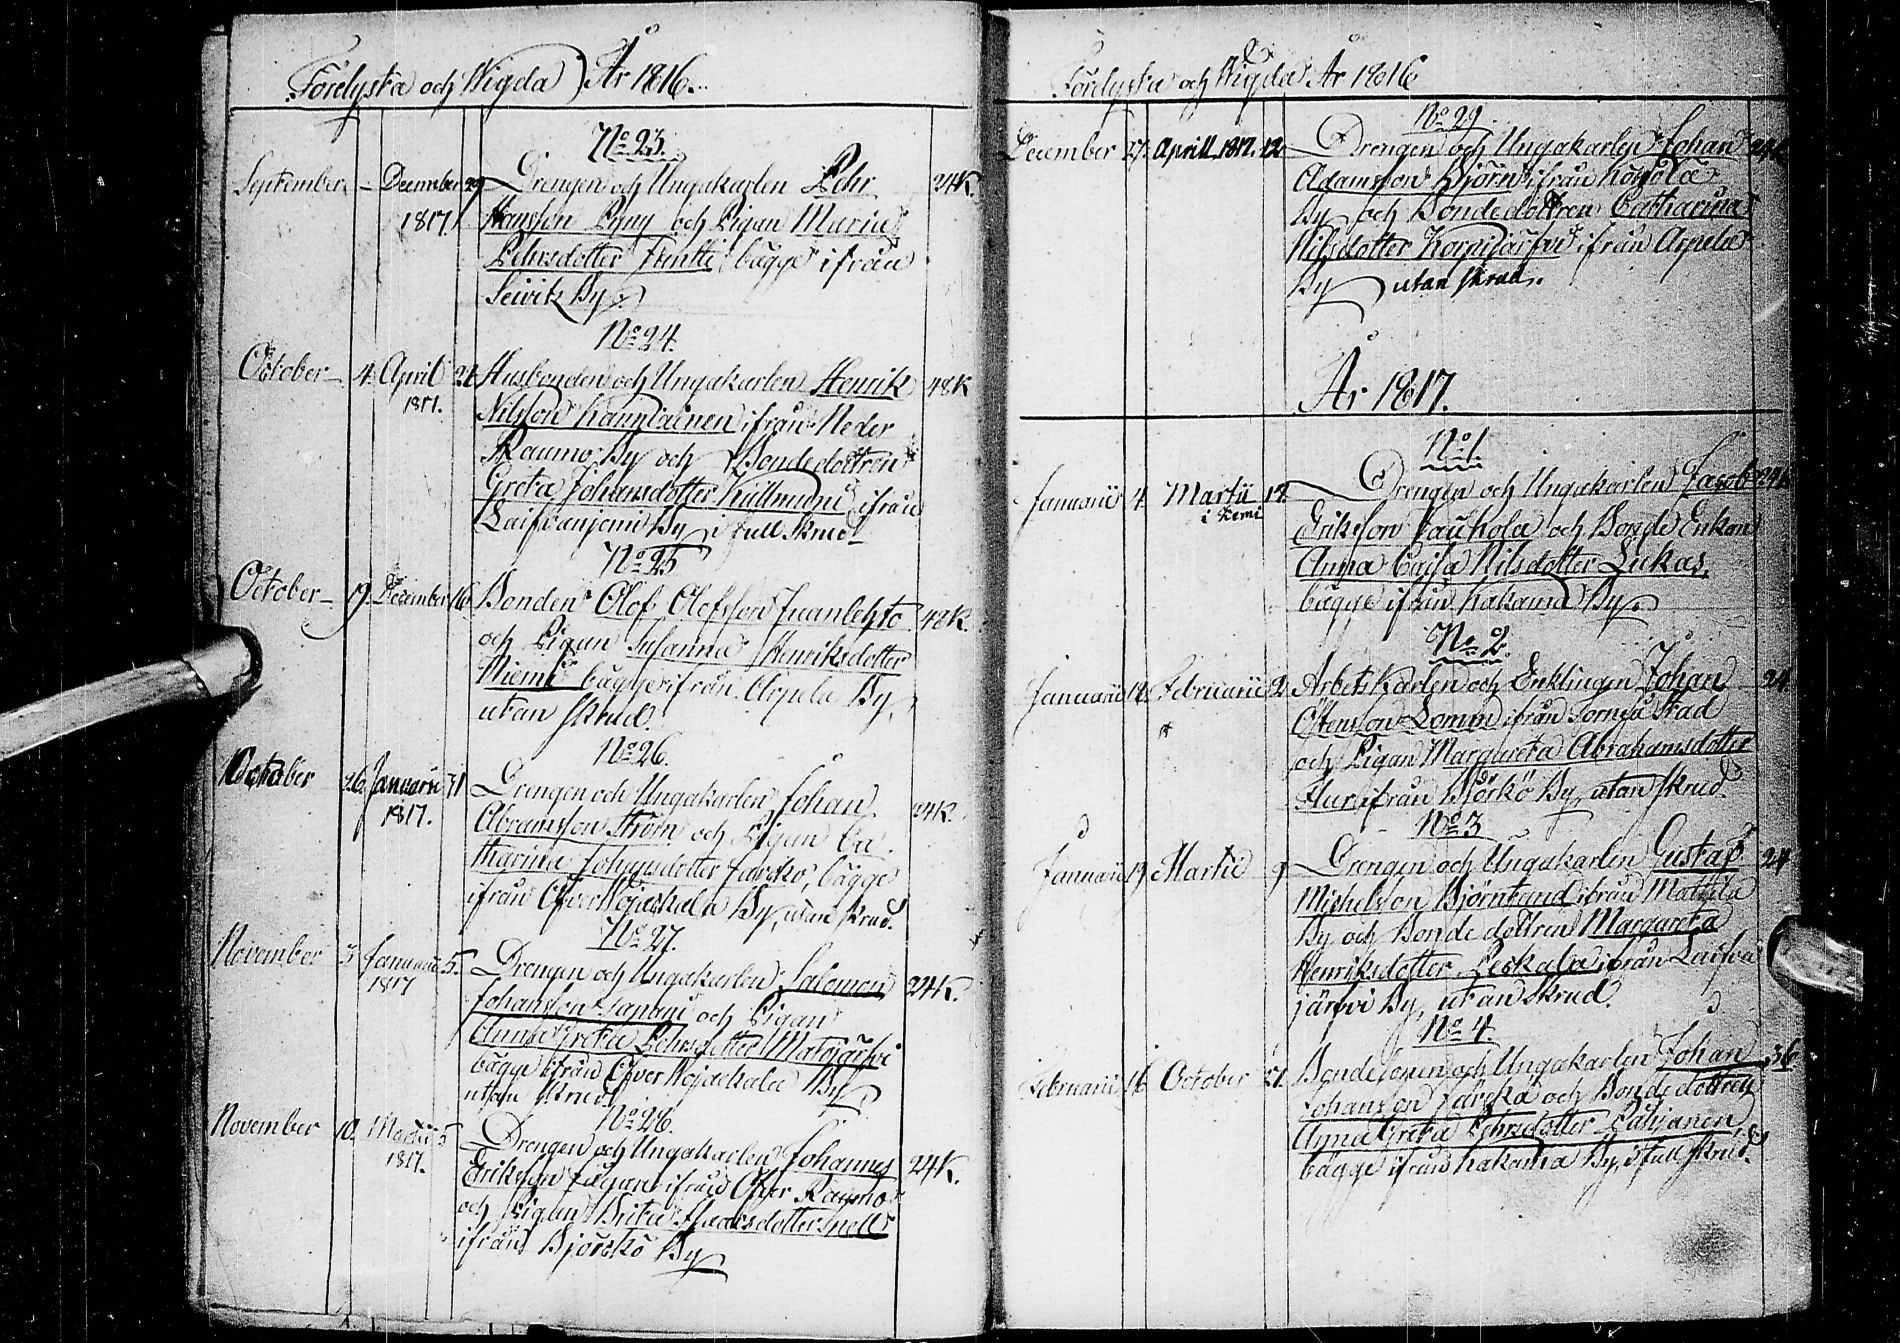 Förelysta och Wigda År 1816.
No 23.
September - December 29 Drengen och Ungakarlen Pehr 24K.
1817. Hansson och Pigan Maria
Pehrsdotter bägge ifrån
Seivitz By.
No 24.
October 4. April 21 Husbonden och Ungakarlen Henrik 48K
1817. Nilsson ifrån Neder
Raumo By och Bondedottren
Greta Johansdotter ifrån
By i full skrud
No 25
October 19. December 16 Bonden Olof Olofsson Juanlehto 48K.
och Pigan Susanna Henriksdotter
Niemi bägge ifrån Arpela By,
utan skrud.
No 26.
October 26. Januarii 31 Drengen och Ungakarlen Johan 24K.
1817. Abramsson Ström och Pigan Ca
tharina Johansdotter bägge
ifrån Öfver Wojackala By, utan skrud.
No 27.
November 3 Januarii 5. Drengen och Ungakarlen Salomon 24K.
1817 Johansson och Pigan
Anna Greta Pehrsdotter Matojärfvi
bägge ifrån Öfver Wojackala By
utan skrud
No 28.
November 10. Martii 5 Drengen och Ungakarlen Johannes 24K.
1817. Eriksson ifrån Öfver Raumo
och Pigan Brita Snell
ifrån Björkö By
Förelysta och Wigda År 1816
No 29
December 27. Aprill 1817. 12 Drengen och Ungakarlen Johan 24K
Adamsson Björn ifrån
By och Bondedottren Catharina
Nilsdotter Karpijärfvi ifrån Arpela
By utan skrud.
År 1817.
No 1.
Januarii 4. Martii 12. Drengen och Ungakarlen Jacob 24K
i Kemi Eriksson Kauhola och Bonde Enkan
Anna Caisa Nilsdotter Lukas,
bägge ifrån Kakama By.
No 2.
Januarii 12. Februarii 2. Arbets Karlen och Enklingen Johan 24.
Lomm ifrån Torneå Stad
och Pigan Margareta Abrahamsdotter
ifrån Björkö By, utan skrud.
No 3
Januarii 19 Martii 9 Drengen och Ungakarlen Gustaf 24
Michelsson Björnlund ifrån Mattila
By och Bonde dottren Margareta
Henriksdotter Leskala ifrån Laifva
järfvi By, utan skrud.
No 4.
Februarii 16 October 21. Bondesonen och Ungakarlen Johan 36
Johansson och Bonde dottren
Anna Greta Pehrsdotter
bägge ifrån Kakama By, i full skrud.